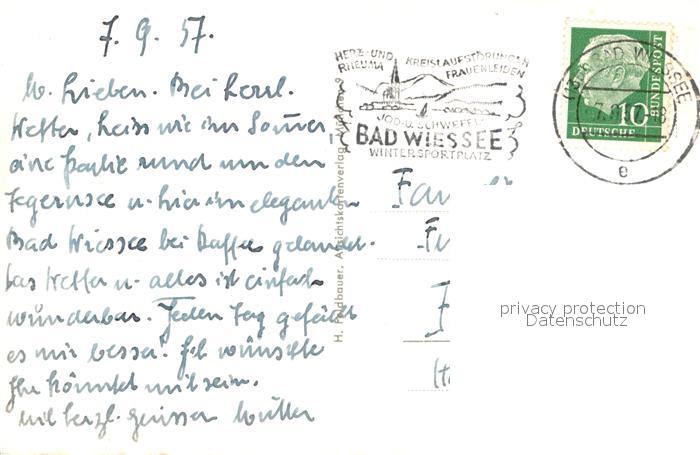 7. 9. 57.
M. Lieben. Bei herrl.
Wetter, heiss wie im Sommer,
eine Partie rund um den
Tegernsee u. hier im eleganten
Bad Wiessee bei Kaffee gelandet.
Das Wetter u. alles ist einfach
wunderbar. Jeden Tag gefällt
es mir besser. Ich wünschte
Ihr könntet mit sein.
Mit herzl. Grüssen Mutter
H. Feldbauer, Ansichtskartenverlag, München 9
HERZ- UND KREISLAUFSTÖRUNGEN
RHEUMA FRAUENLEIDEN
JOD-U. SCHWEFEL-
BAD WIESSEE
WINTERSPORTPLATZ
BAD WIESSEE
e
10
DEUTSCHE
BUNDESPOST
Fa
privacy protection
Datenschutz